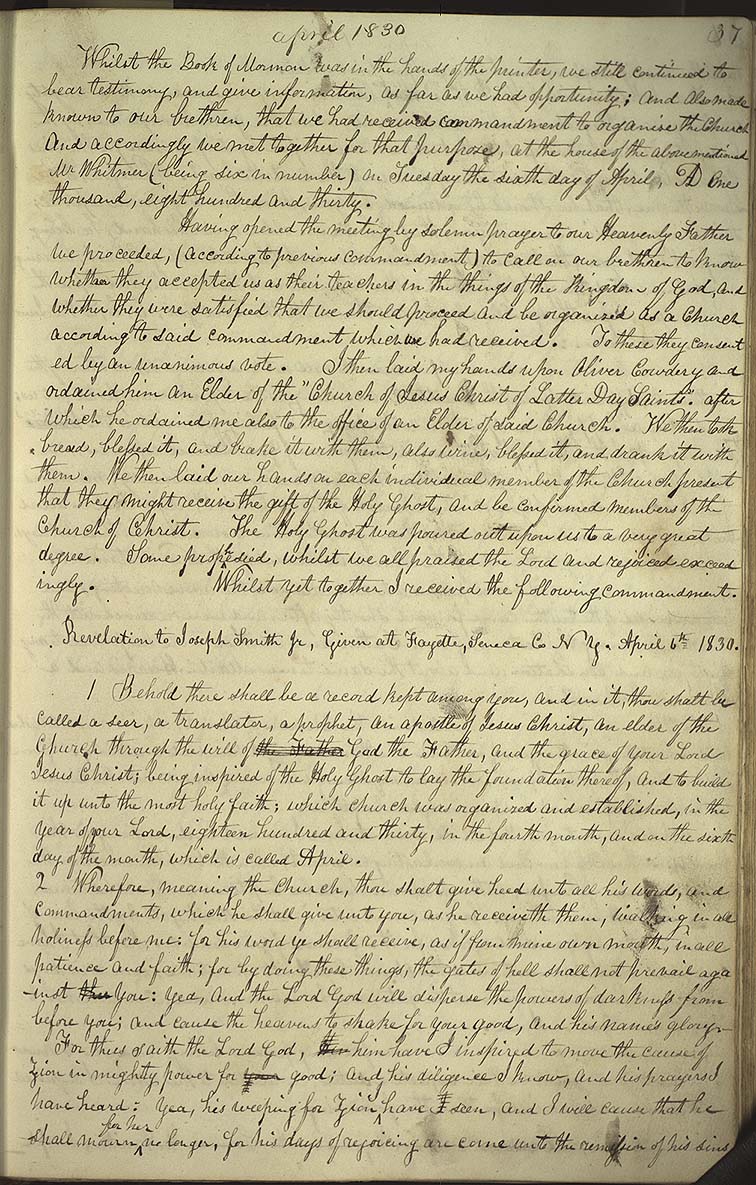 april 1830 37
Whilst the Book of Mormon was in the hands of the printer, we still continued to
bear testimony, and give information, as far as we had opportunity; and also made
known to our brethren, that we had received commandment to organise the Church
And accordingly we met together for that purpose, at the house of the above mentioned
Mr Whitmer (being six in number) on Tuesday the sixth day of April, AD One
thousand, eight hundred and thirty.
Having opened the meeting by solemn prayer to our Heavenly Father
we proceeded, (according to previous commandment) to call on our brethren to know
whether they accepted us as their teachers in the things of the Kingdom of God, and
whether they were satisfied that we should proceed and be organised as a Church
according to said commandment which we had received. To these they consent
ed by an unanimous vote. I then laid my hands upon Oliver Cowdery and
ordained him an Elder of the "Church of Jesus Christ of Latter Day Saints". after
which he ordained me also to the office of an Elder of said Church. We then took
bread, blessed it, and brake it with them, also wine, blessed it, and drank it with
them. We then laid our hands on each individual member of the Church present
that they might receive the gift of the Holy Ghost, and be confirmed members of the
Church of Christ. The Holy Ghost was poured out upon us to a very great
degree. Some prophesied, whilst we all praised the Lord and rejoiced exceed
ingly. Whilst yet together I received the following commandment.
Revelation to Joseph Smith Jr, Given at Fayette, Seneca Co N Y. April 6th 1830.
1 Behold there shall be a record kept among you, and in it, thou shalt be
called a seer, a translator, a prophet, an apostle of Jesus Christ, an elder of the
Church through the will of the Father God the Father, and the grace of your Lord
Jesus Christ; being inspired of the Holy Ghost to lay the foundation thereof, and to build
it up unto the most holy faith; which church was organized and established, in the
year of your Lord, eighteen hundred and thirty, in the fourth month, and on the sixth
day of the month, which is called April.
2 Wherefore, meaning the Church, thou shalt give heed unto all his words, and
commandments, which he shall give unto you, as he receiveth them, walking in all
holiness before me: for his word ye shall receive, as if from mine own mouth, in all
patience and faith; for by doing these things, the gates of hell shall not prevail aga
-inst you: yea, and the Lord God will disperse the powers of darkness from
before you; and cause the heavens to shake for your good, and his name's glory.
For thus saith the Lord God, him have I inspired to move the cause of
Zion in mighty power for good; and his diligence I know, and his prayers I
have heard: yea, his weeping for Zion have I seen, and I will cause that he
shall mourn for her no longer, for his days of rejoicing are come unto the remission of his sins